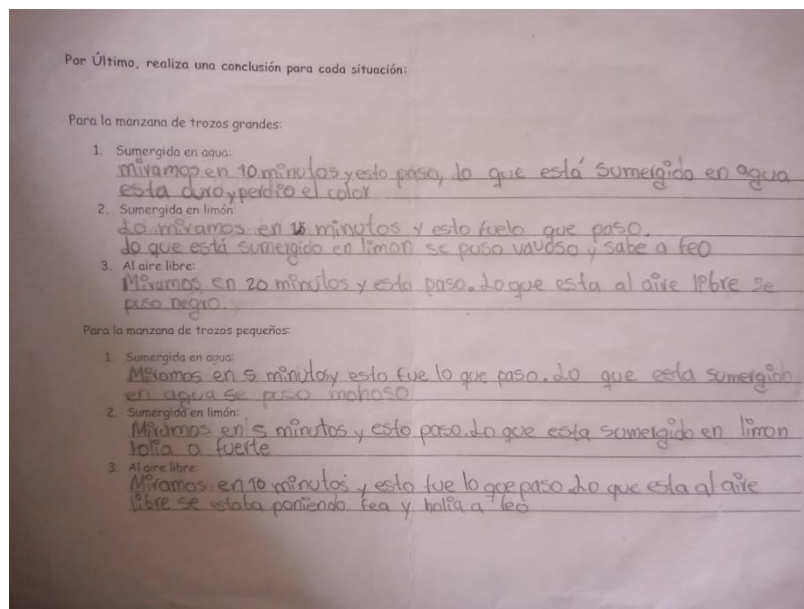 Por Último, realiza una conclusión para cada situación:
Para la manzana de trozos grandes:
1. Sumergida en agua:
miramos en 10 minutos y esto paso, lo que está sumergido en agua
esta duro y perdio el color
2. Sumergida en limón:
Lo miramos en 15 minutos y esto fuelo que paso.
lo que está sumergido en limon se puso vavoso y sabe a feo
3. Al aire libre:
Miramos en 20 minutos y esto paso. Lo que esta al aire libre se
puso negro.
Para la manzana de trozos pequeños:
1. Sumergida en agua:
Miramos en 5 minutos y esto fue lo que paso. Lo que esta sumergido
en agua se puso mohoso
2. Sumergida en limón:
Miramos en 5 minutos y esto paso. Lo que esta sumergido en limon
holia a fuerte
3. Al aire libre:
Miramos en 10 minutos y esto fue lo que paso. Lo que esta al aire
libre se estaba poniendo fea y holia a feo